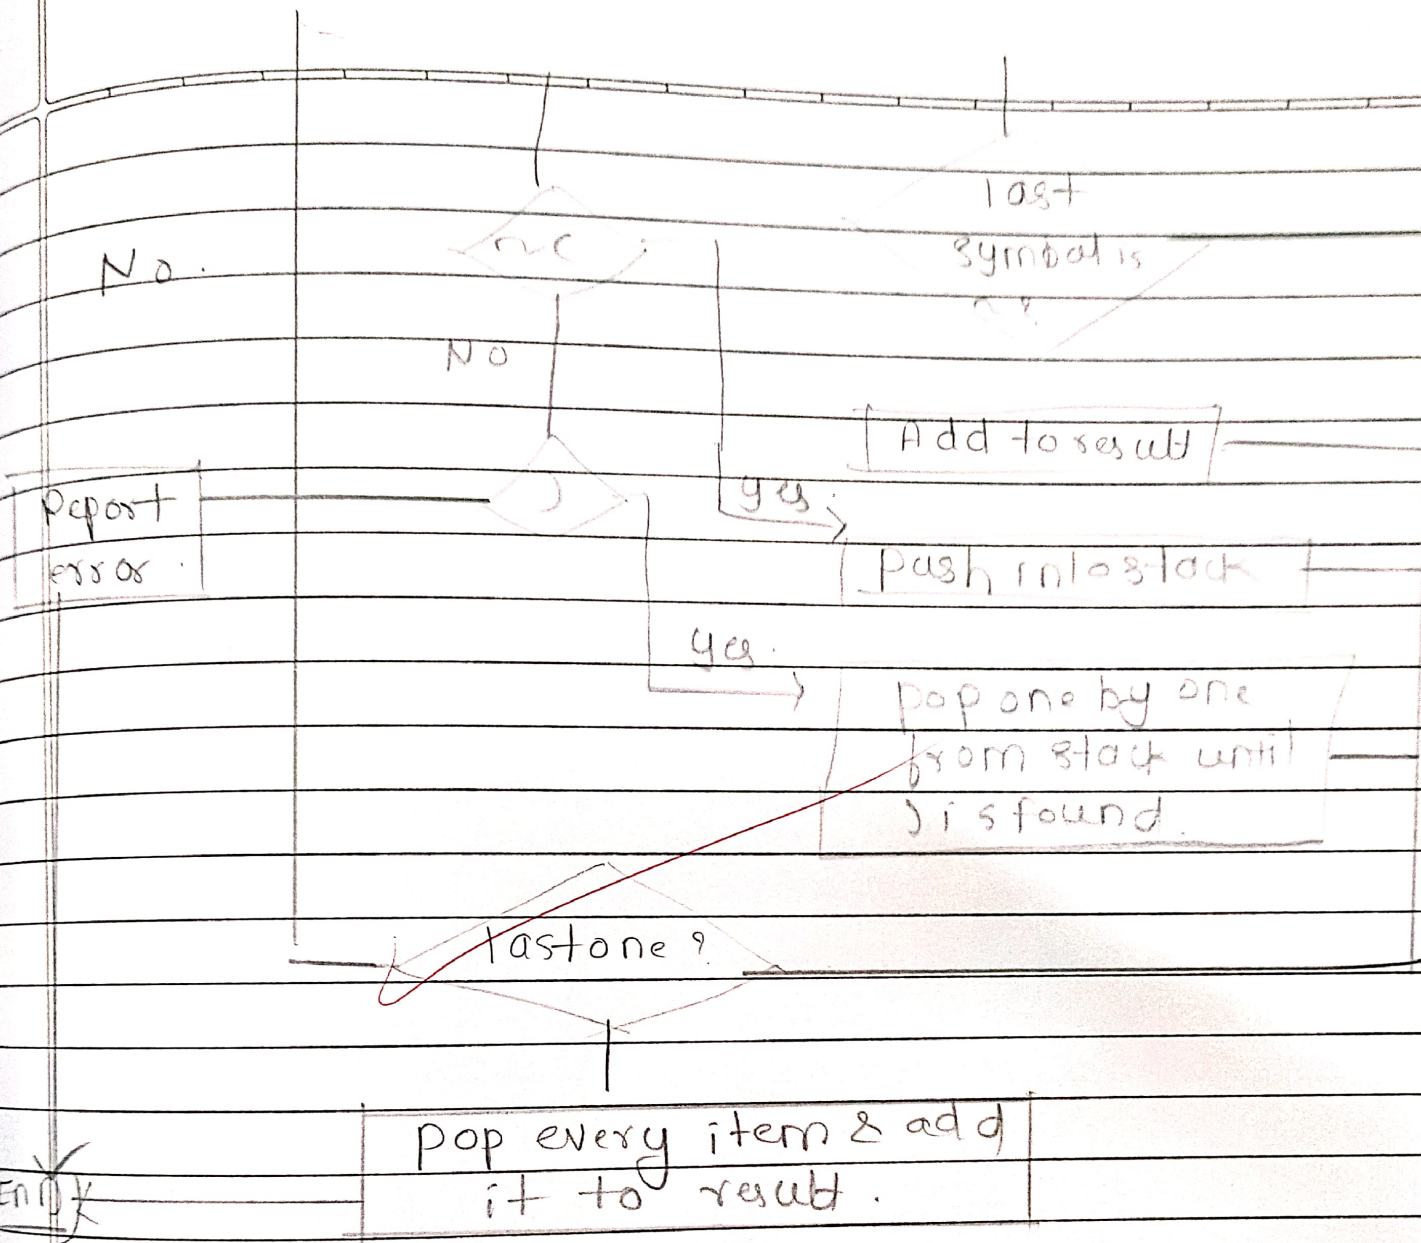 last
symbol is
No.
No
Add to result
yes.
Report
error.
)
push into stack
yes.
pop one by one
from stack until
) is found.
last one ?
pop every item & add
it to result.
End